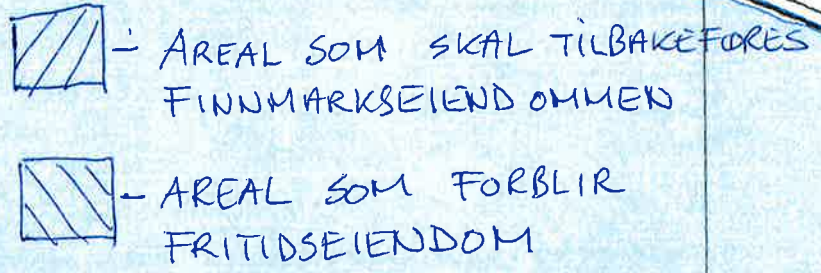 - AREAL SOM SKAL TILBAKEFØRES
FINNMARKSEIENDOMMEN
- AREAL SOM FORBLIR
FRITIDSEIENDOM